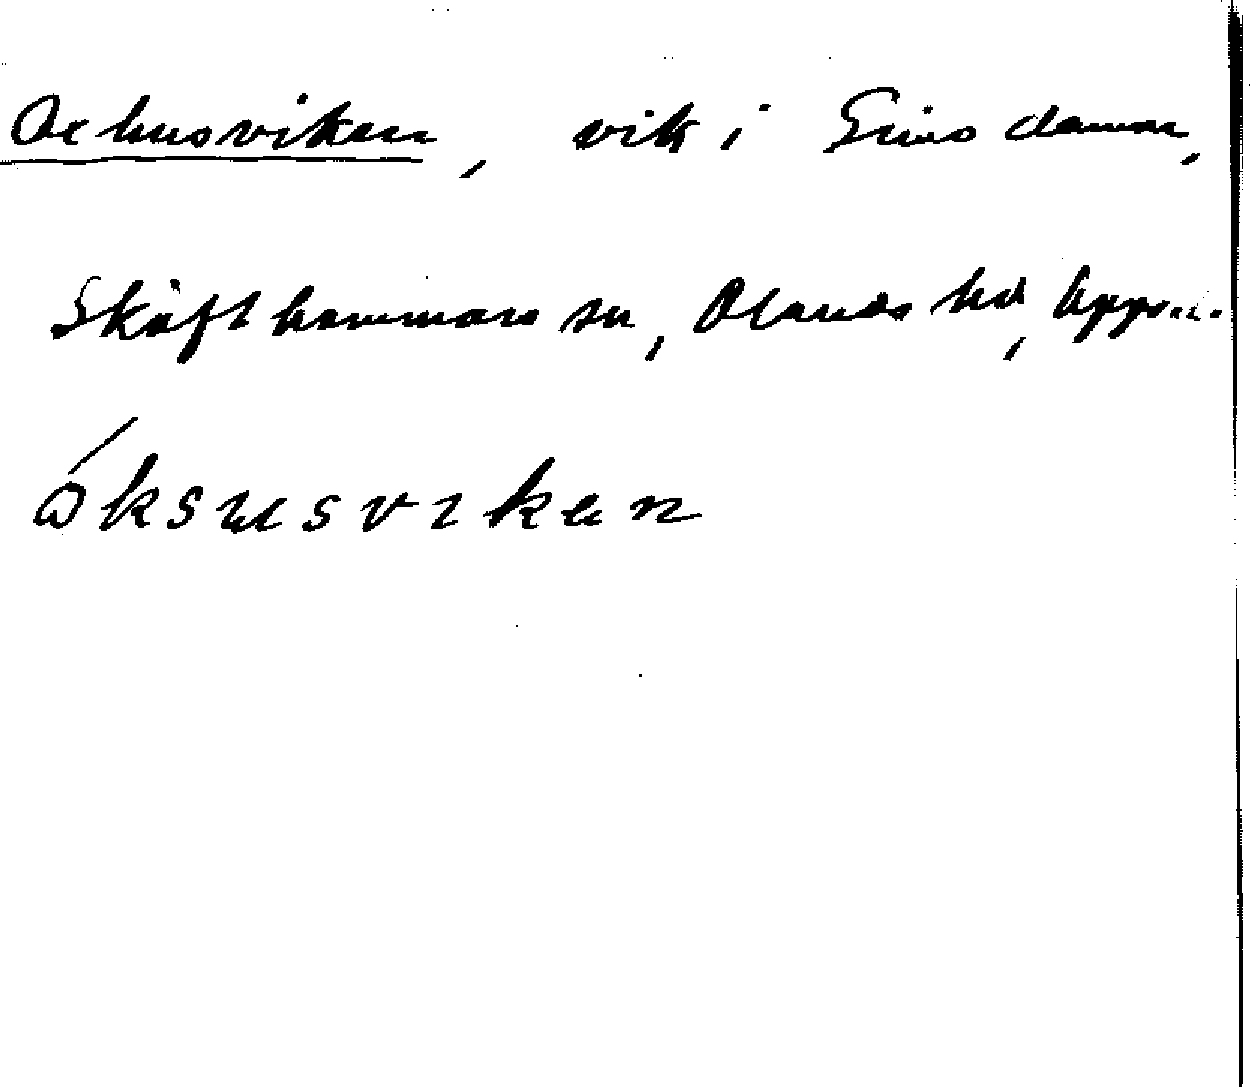 Oxhusviken, vik i Gimo damm,
Skäfthammars sn, Olands hd, Upps...
ò́ksusviken